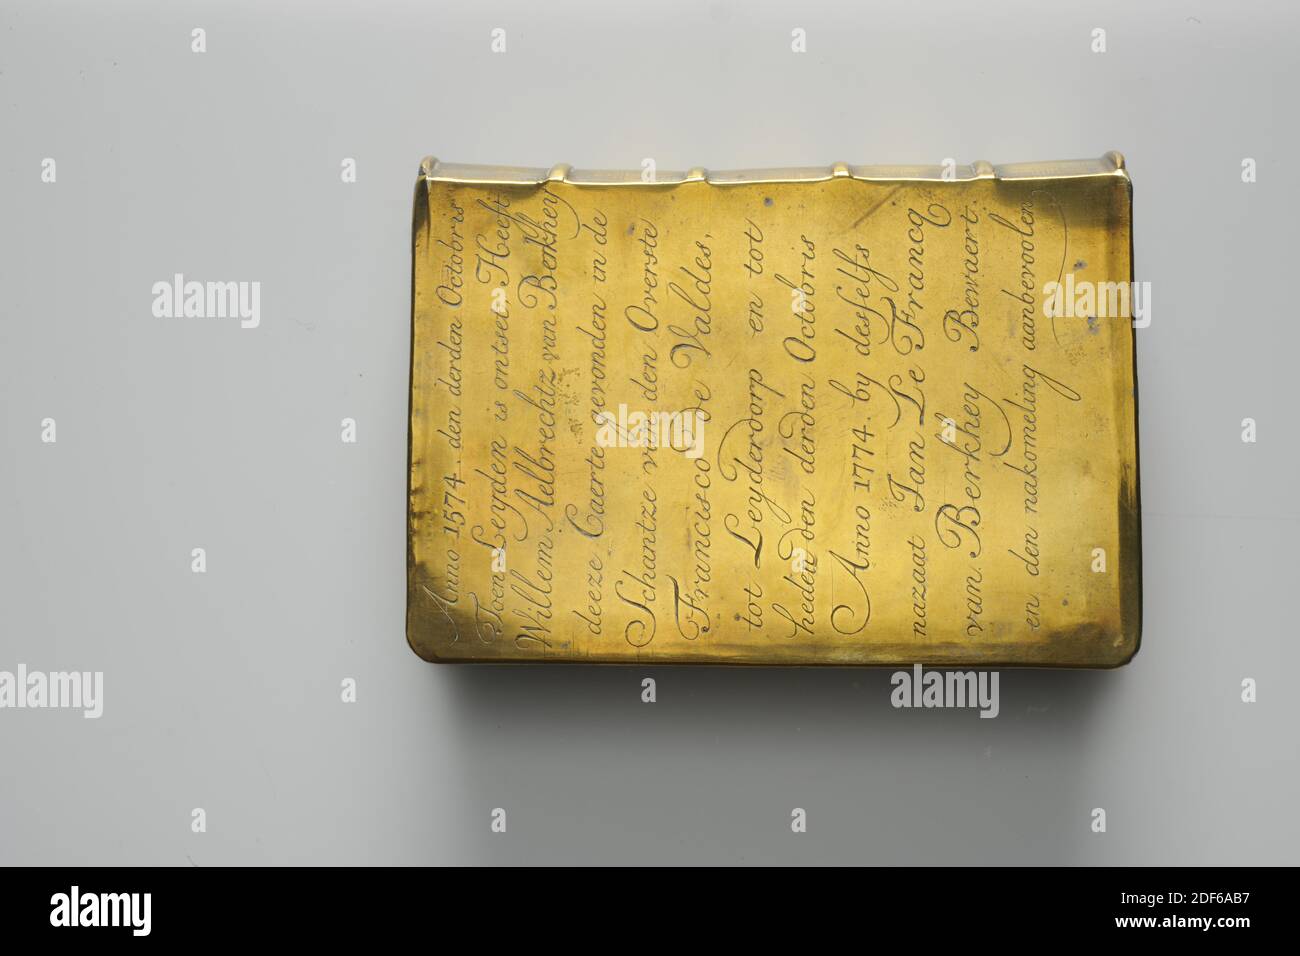 Anno 1574 den derden Octobris
Toen Leyden is ontset, Heeft
Willem Aelbrechtz van Berkhey
deeze Caerte gevonden in de
Schantze van den Overste
Francisco de Valdes,
tot Leyderdorp en tot
heden den derden Octobris
Anno 1774. by desselfs
nazaat Jan Le Francq
van Berkhey Bewaert.
en den nakomeling aanbevoolen
alamy
alamy
alamy
alamy
alamy
alamy
Image ID: 2DF6AB7
www.alamy.com